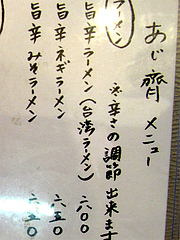 あじ齊 メニュー
※辛さの調節出来ます
ラーメン
旨辛ラーメン(台湾ラーメン) 六〇〇
旨辛ネギラーメン 六五〇
旨辛みそラーメン 六五〇